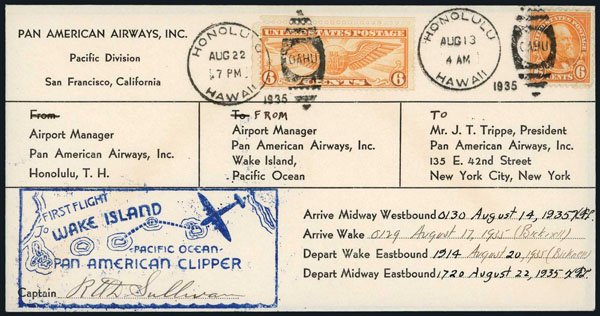 PAN AMERICAN AIRWAYS, INC.
Pacific Division
San Francisco, California
HONOLULU
AUG 22
7 PM
HAWAII
1935
OAHU
UNITED STATES POSTAGE
6 CENTS 6
HONOLULU
AUG 13
4 AM
HAWAII
1935
OAHU
CENTS 6
From
Airport Manager
Pan American Airways, Inc.
Honolulu, T. H.
To FROM
Airport Manager
Pan American Airways, Inc.
Wake Island,
Pacific Ocean
TO
Mr. J. T. Trippe, President
Pan American Airways, Inc.
135 E. 42nd Street
New York City, New York
FIRST FLIGHT
TO WAKE ISLAND
-PACIFIC OCEAN-
PAN AMERICAN CLIPPER
Captain R O D Sullivan
Arrive Midway Westbound 0130 August 14, 1935
Arrive Wake 0129 August 17, 1935
Depart Wake Eastbound 1914 August 20, 1935
Depart Midway Eastbound 1720 August 22, 1935